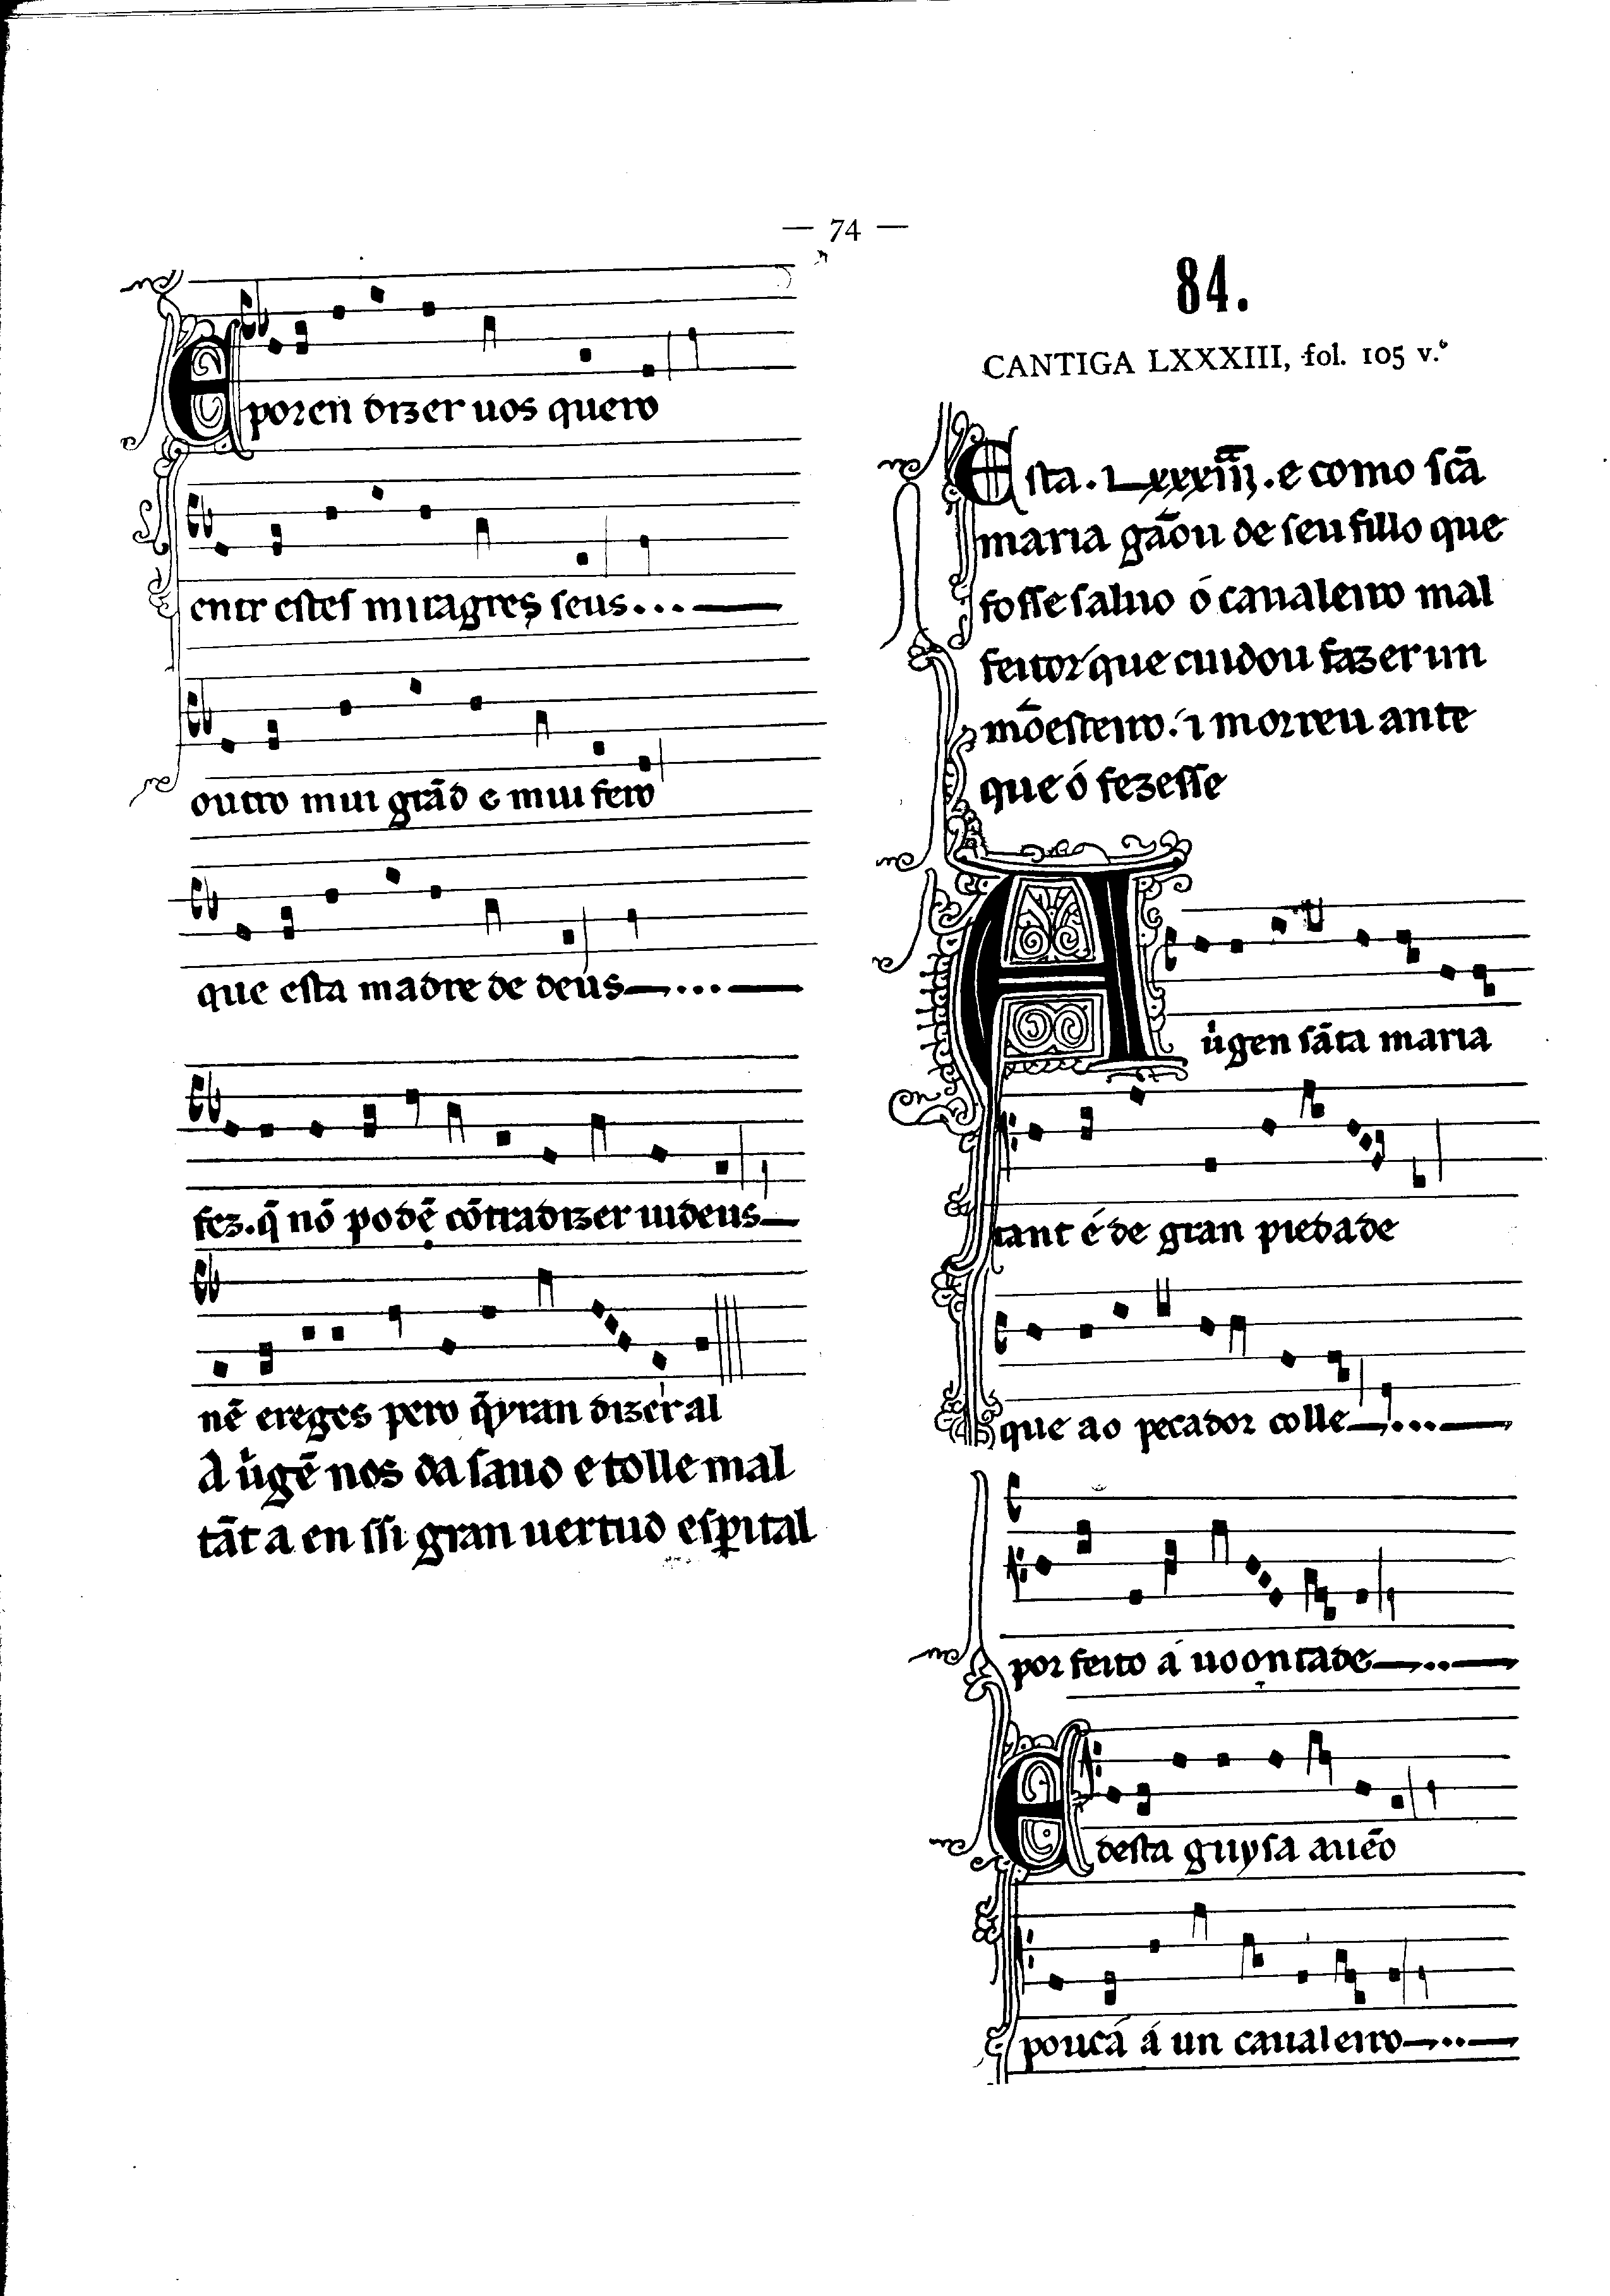 — 74 —
E poren dizer uos quero
entr estes miragres seus...
outro mui grãd e mui fero
que esta madre de deus...
fez. q̃ nõ podẽ cõtradizer iudeus
nẽ ereges pero q̃yran dizer al
A uirgẽ nos da saud e tolle mal
tãt a en ssi gran uertud esp̲ital
84.
CANTIGA LXXXIII, fol. 105 v.º
Esta. Lxxxiii. e como scã
maria gãou de seu fillo que
fosse saluo ó caualeiro mal
feitor que cuidou fazer un
mõesteiro. ⁊ morreu ante
que ó fezesse
A uirgen sãta maria
tant é de gran piedade
que ao pecador colle...
por feito á uoontade..
E desta guysa auẽo
poucá á un caualeiro..